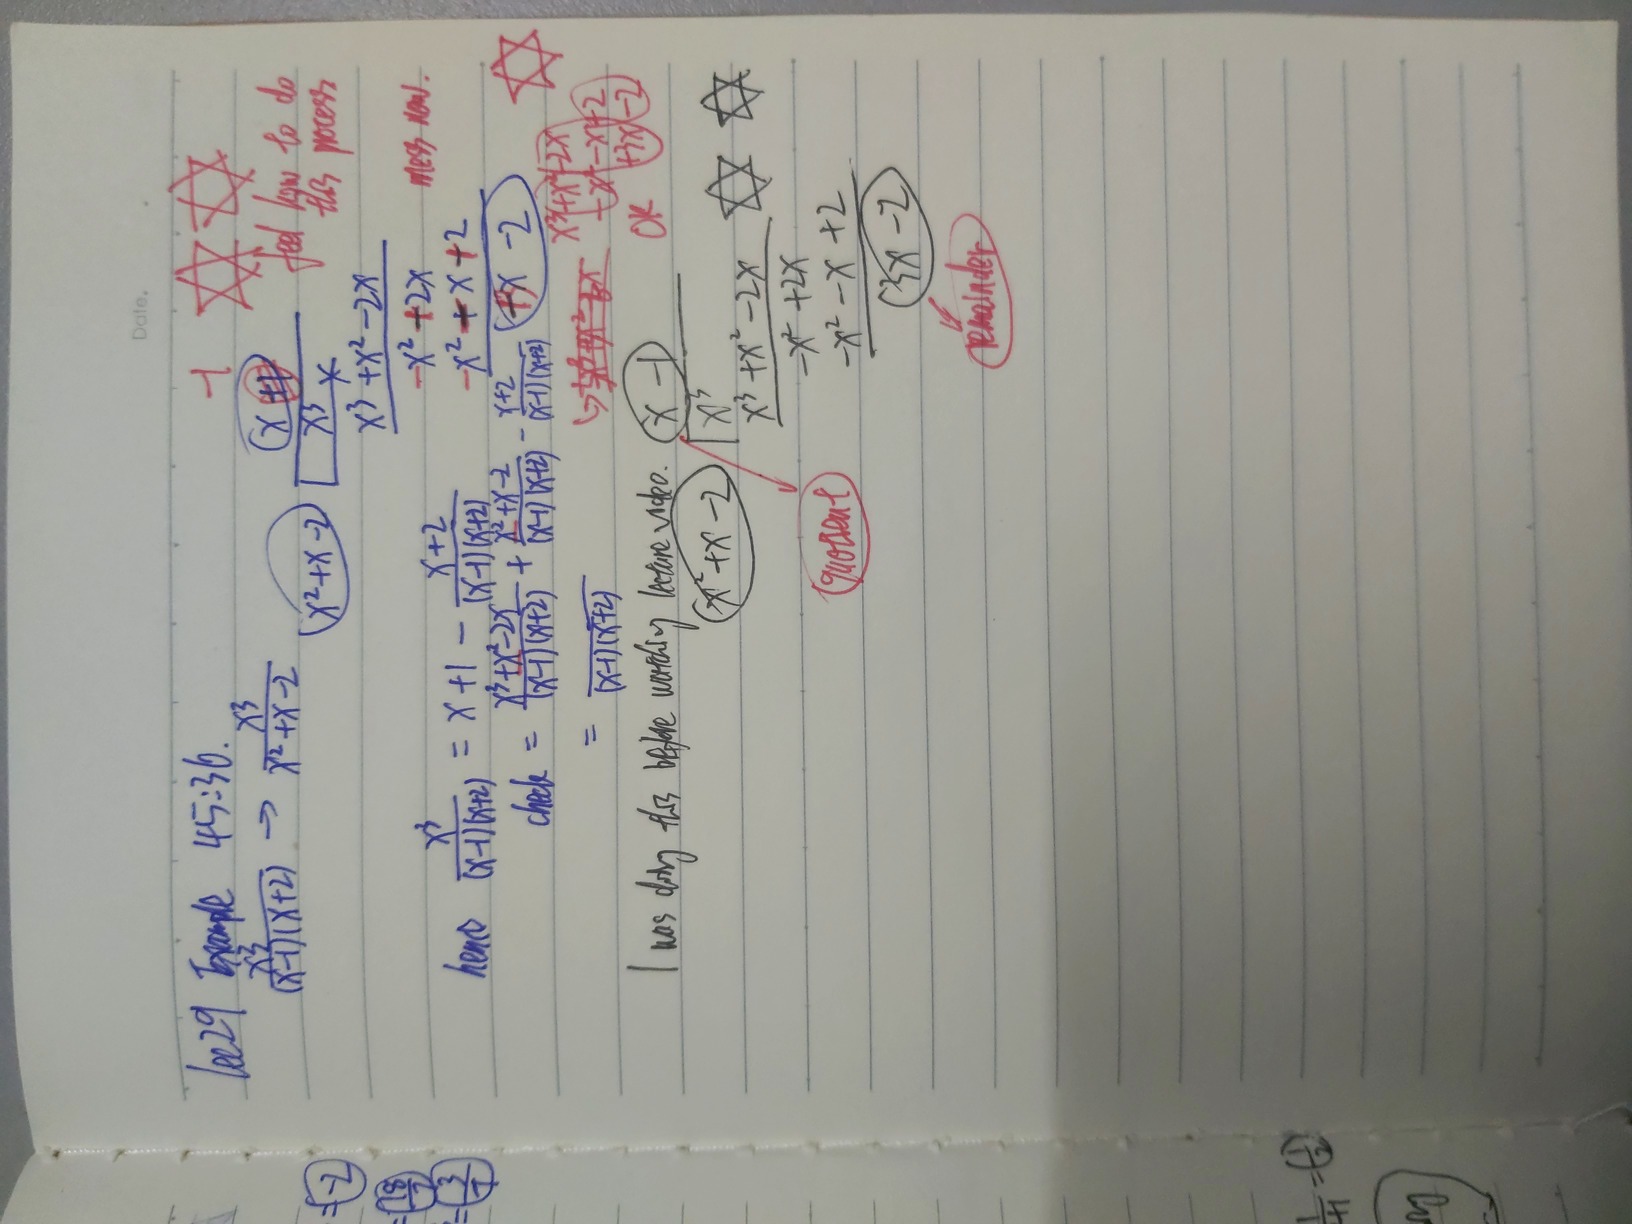 Date.
Lec29 Example 45:36.
x³/(x-1)(x+2) → x³/x²+x-2
-1
(x +1)
x²+x-2 | x³
x
x³ +x² -2x
-x² +2x
-x² + x +2
+3x -2
feel how to do
this process
mess now.
hence x³/(x-1)(x+2) = x+1 - x+2/(x-1)(x+2)
check = x³+x²-2x/(x-1)(x+2) + x²+x-2/(x-1)(x+2) - x+2/(x-1)(x+2)
= /(x-1)(x+2)
x³+x²-2x
-x²-x+2
+3x-2
OK
I was doing this before watching lecture video.
x -1
x²+x-2 | x³
x³ +x² -2x
-x² +2x
-x² -x +2
3x -2
quotient
remainder
=-2
=18/7
=3/7
=1/2